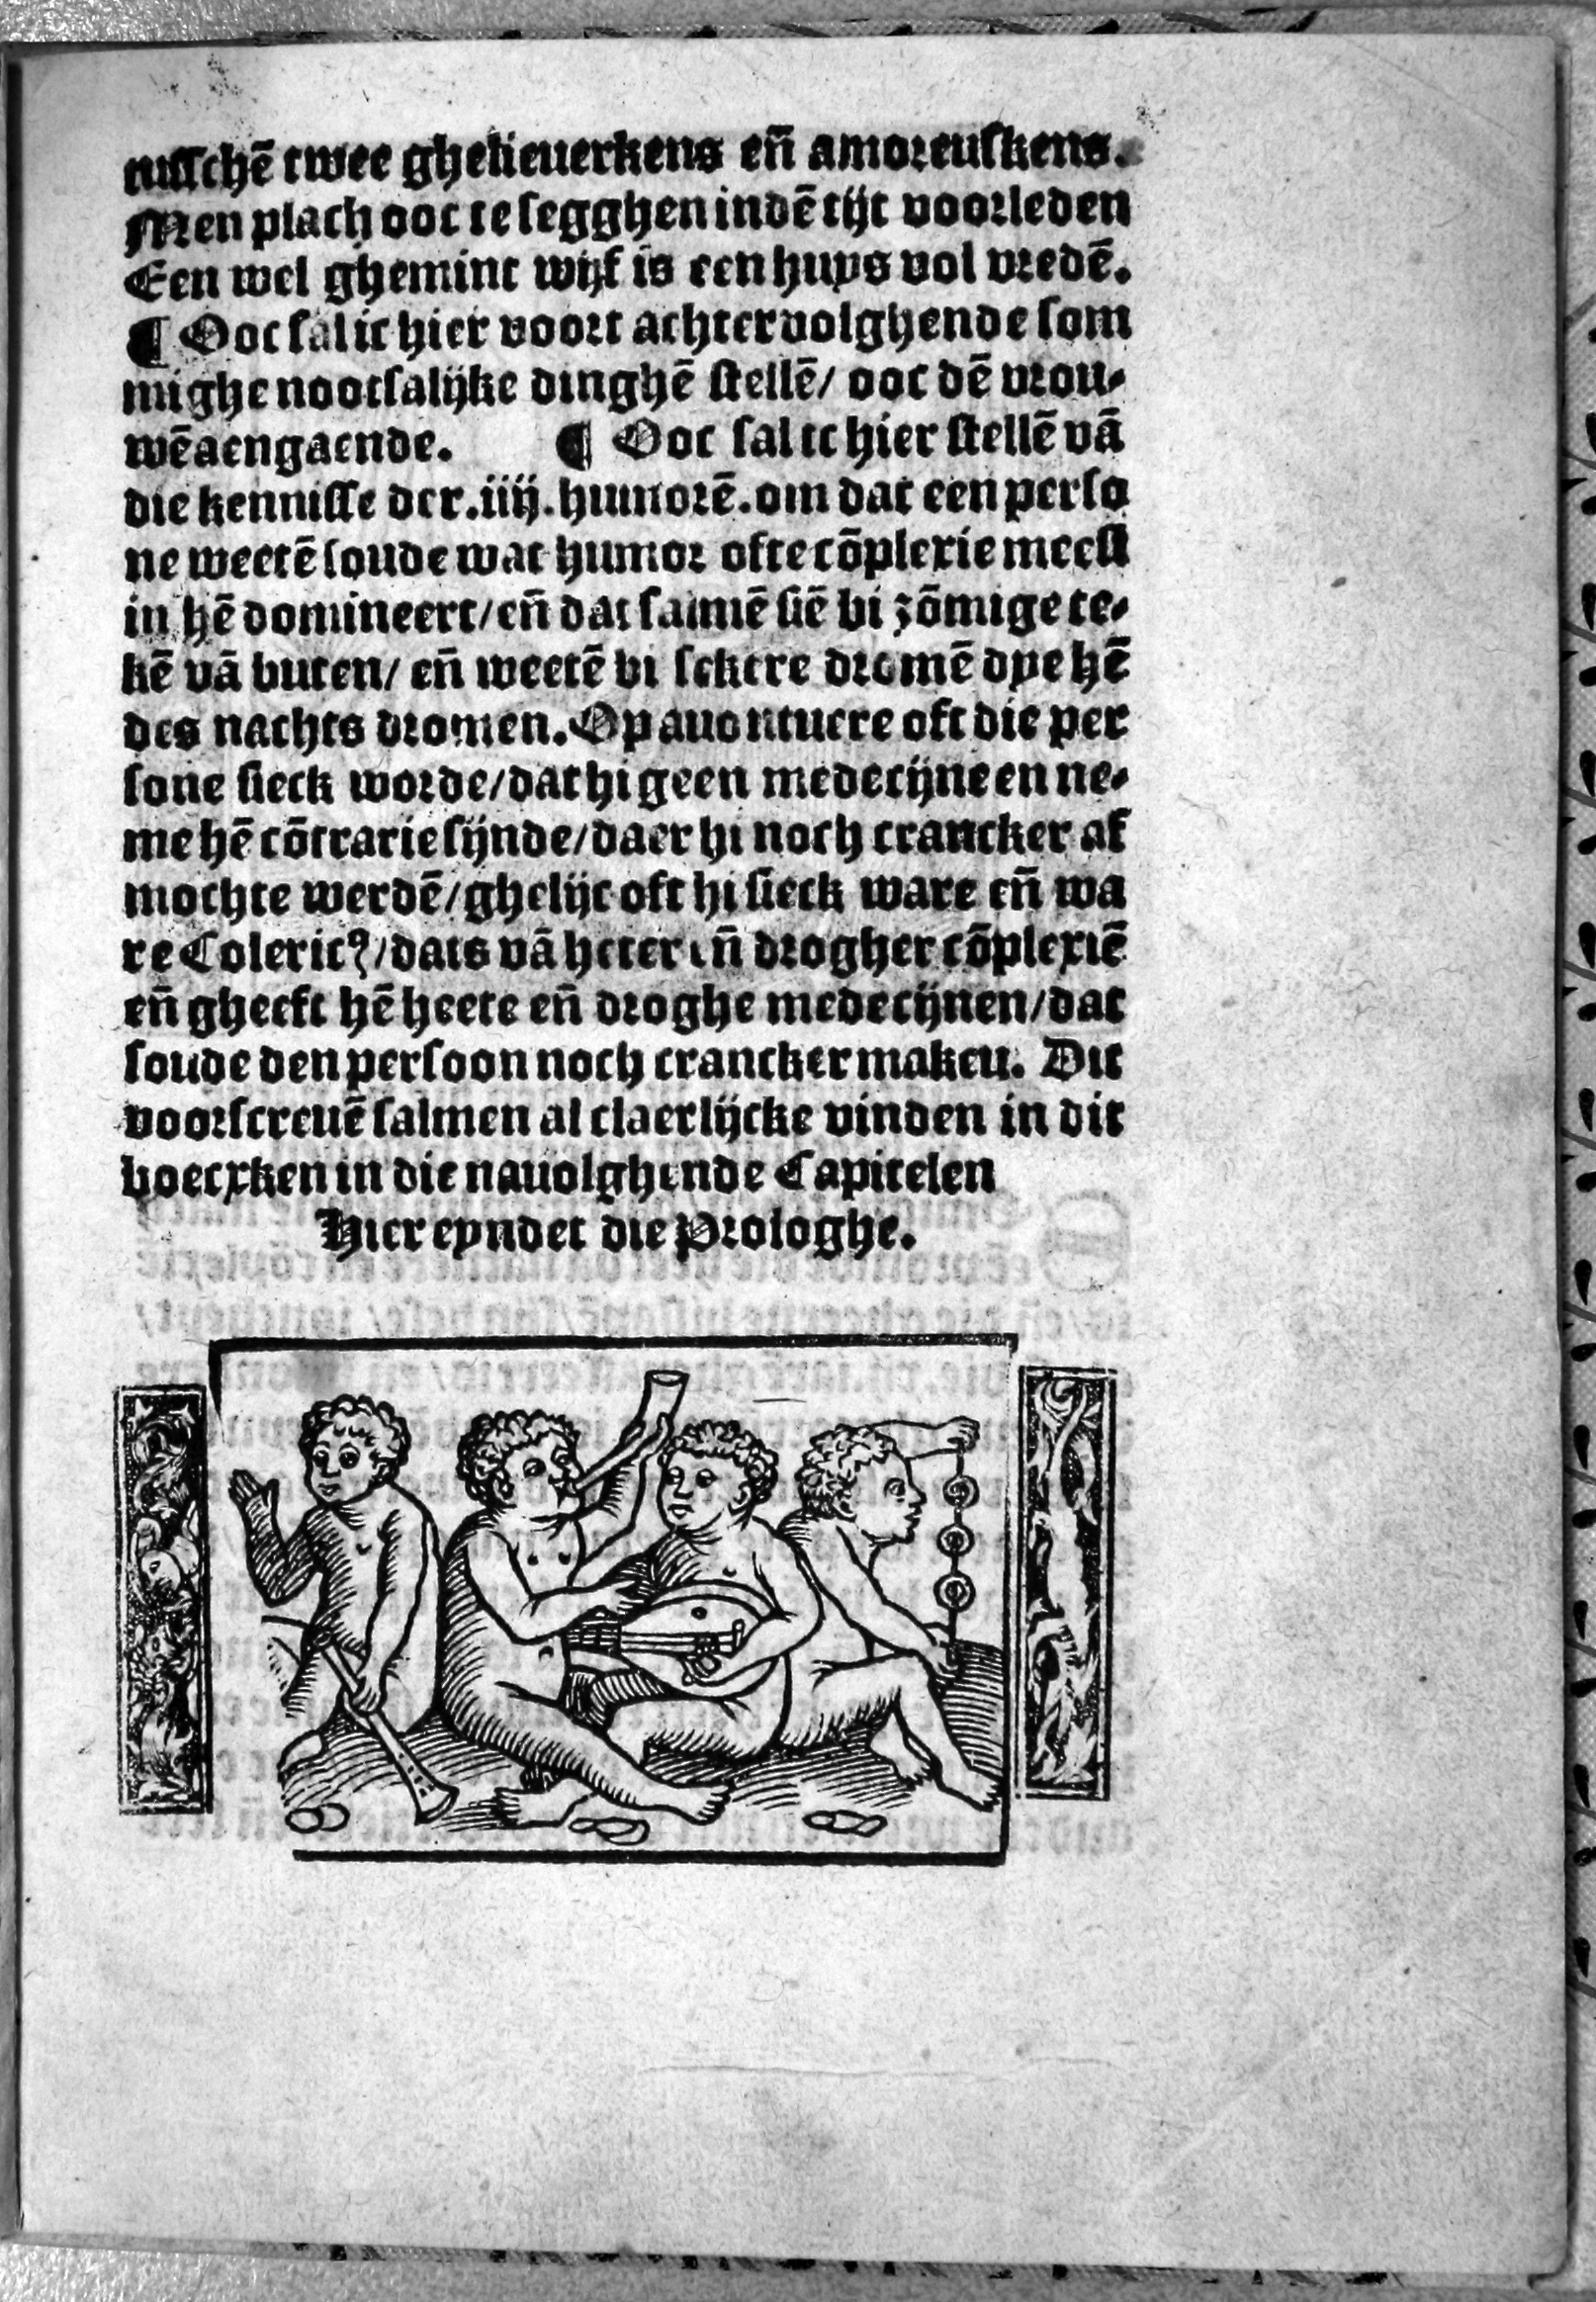 tusschē twee ghelieuerkens eñ amoreuskens.
Men plach ooc te segghen indē tijt voorleden
Een wel ghemint wijf is een huys vol vredē.
¶ Ooc sal ic hier voort achtervolghende som
mighe nootsalijke dinghē stellē/ ooc dē vrou-
wē aengaende. ¶ Ooc sal ic hier stellē vā
die kennisse der .iiij. humorē. om dat een perso
ne weetē soude wat humor ofte cōplexie meest
in hē domineert/ eñ dat salmē siē bi zōmige te-
kē vā buten/ eñ weetē bi sekere dromē dye hē
des nachts dromen. Op auontuere oft die per
sone sieck worde/ dat hi geen medecijne en ne-
me hē cōtrarie sijnde/ daer hi noch crancker af
mochte werdē/ ghelijc oft hi sieck ware eñ wa
re Coleric9/ dats vā heter eñ drogher cōplexiē
eñ gheeft hē heete eñ droghe medecijnen/ dat
soude den persoon noch crancker maken. Dit
voorscreuē salmen al claerlijcke vinden in dit
boecxken in die nauolghende Capitelen
Hier eyndet die Prologhe.